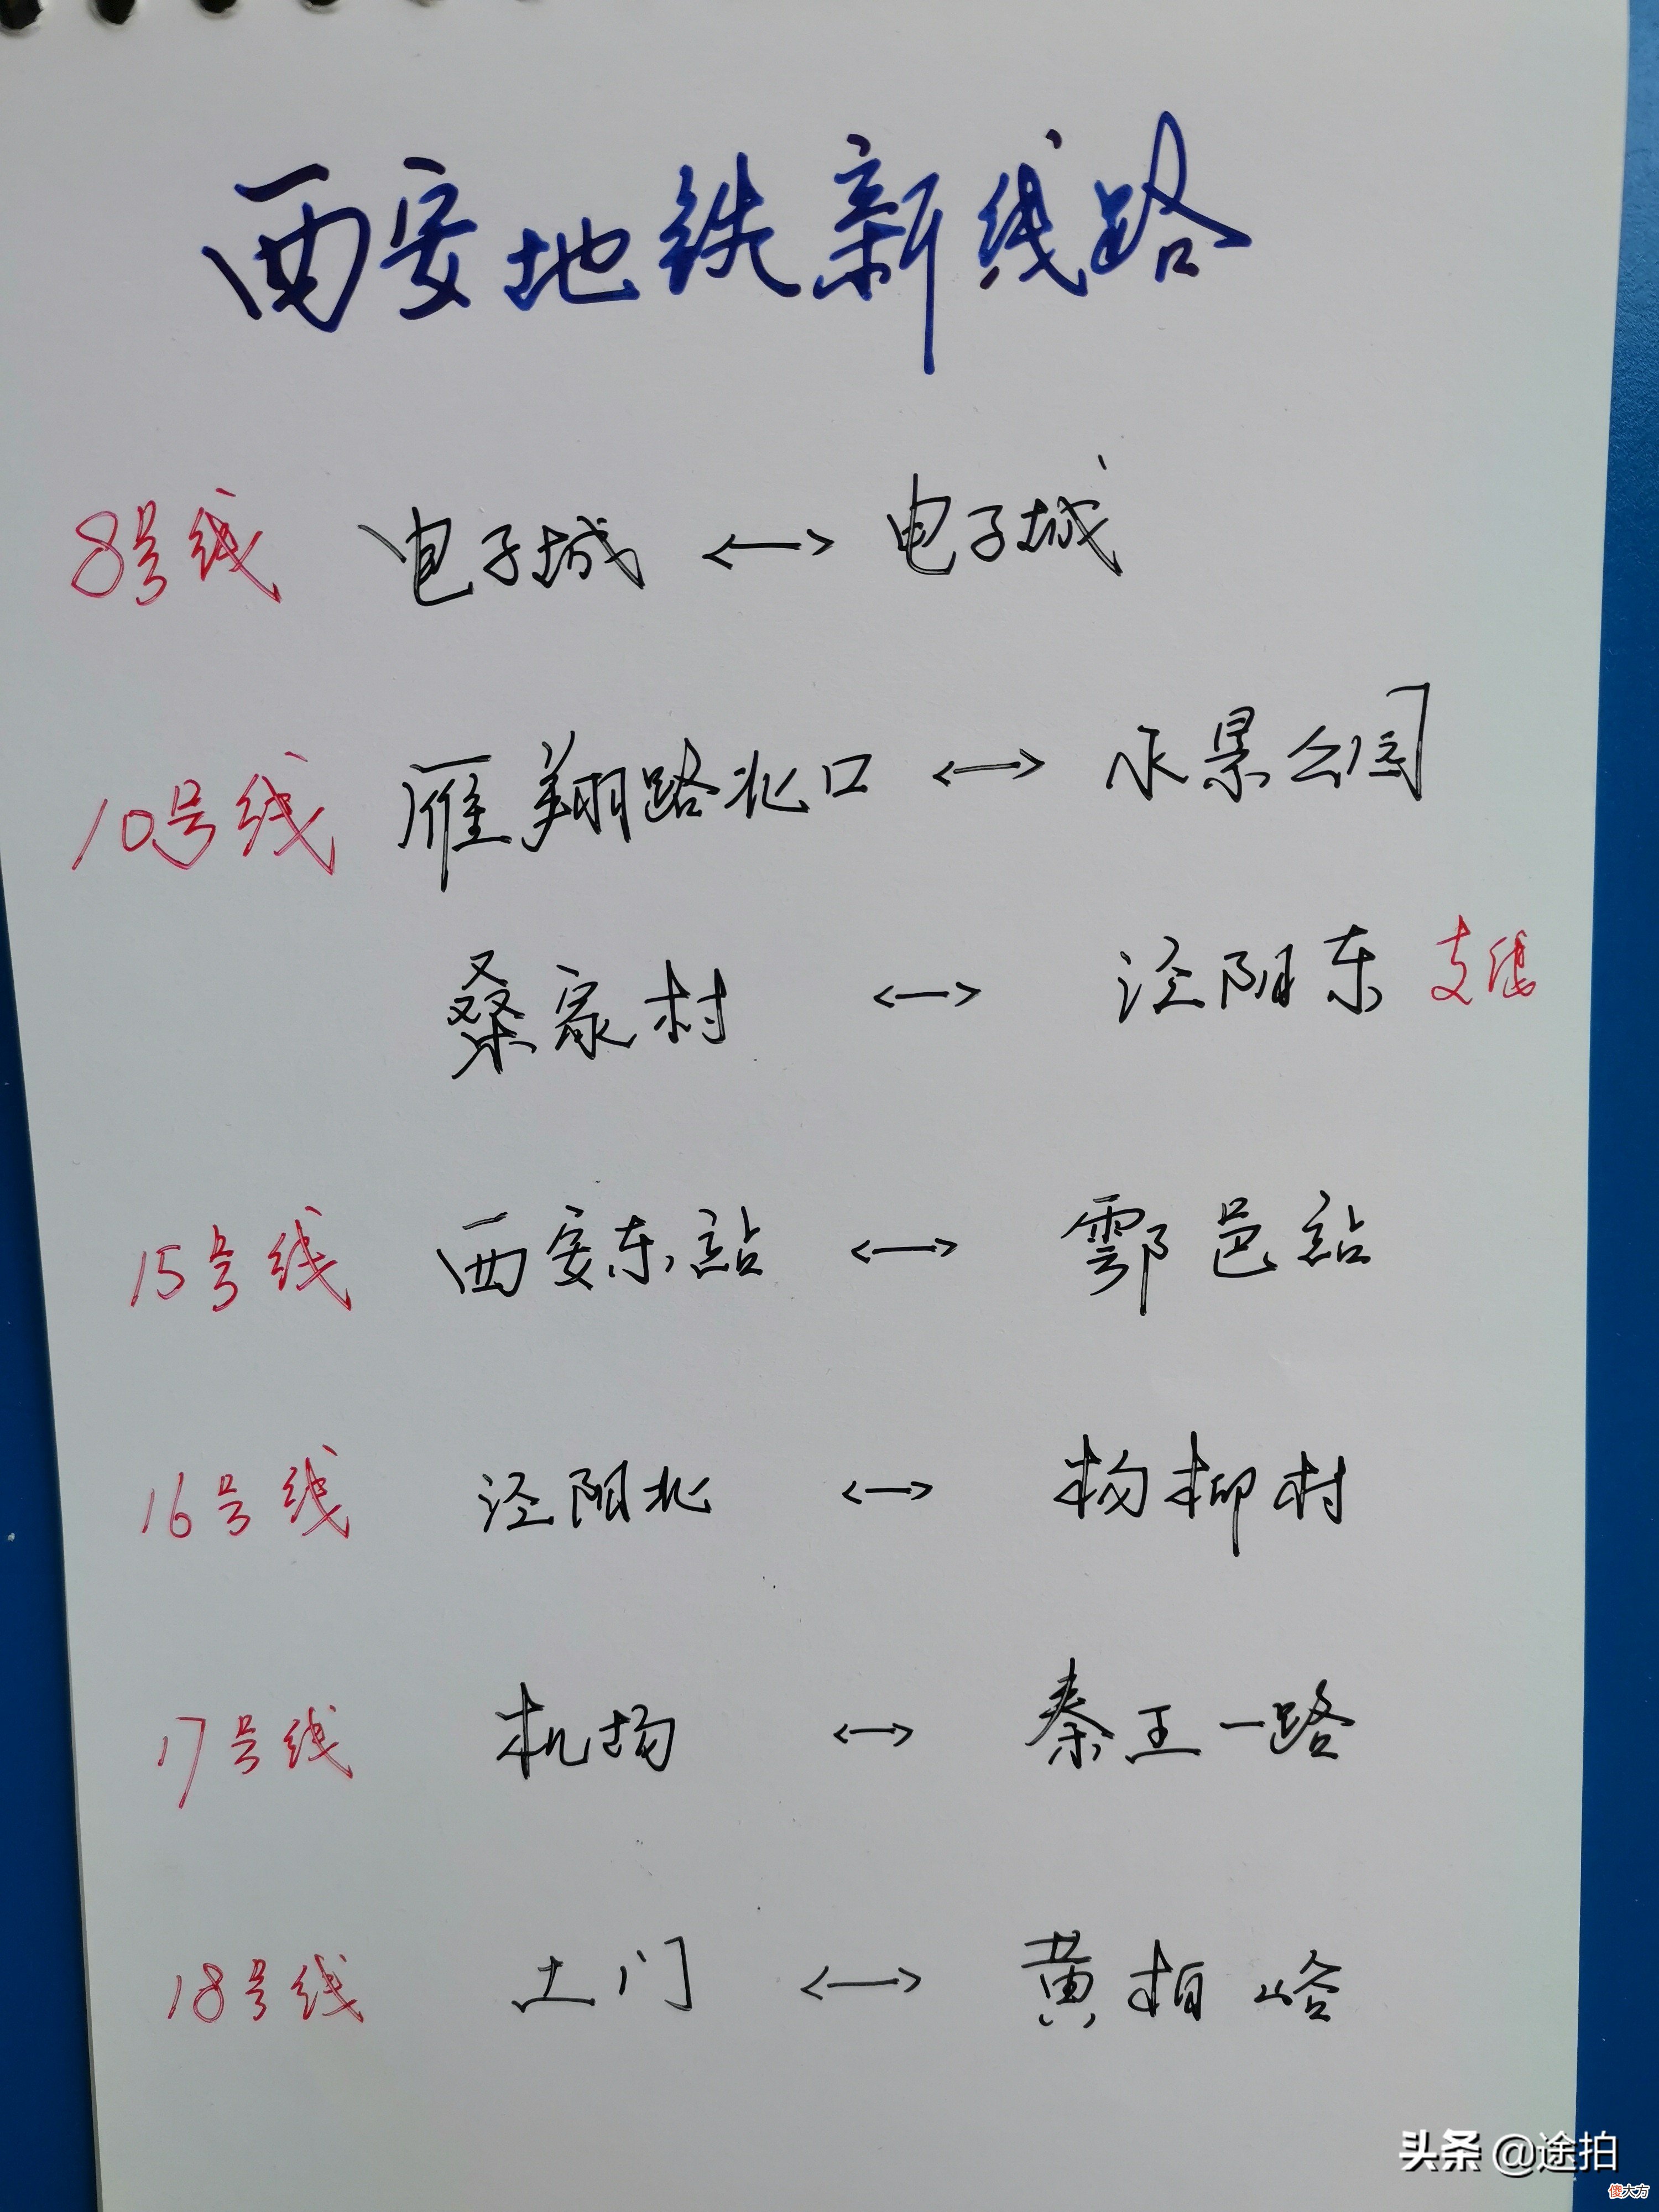 西安地铁新线路
8号线 电子城 <—> 电子城
10号线 雁翔路北口 <—> 水景公园
桑家村 <—> 泾阳东 支线
15号线 西安东站 <—> 鄠邑站
16号线 泾阳北 <—> 杨柳村
17号线 机场 <—> 秦王一路
18号线 土门 <—> 黄柏峪
头条 @途拍
傻大方